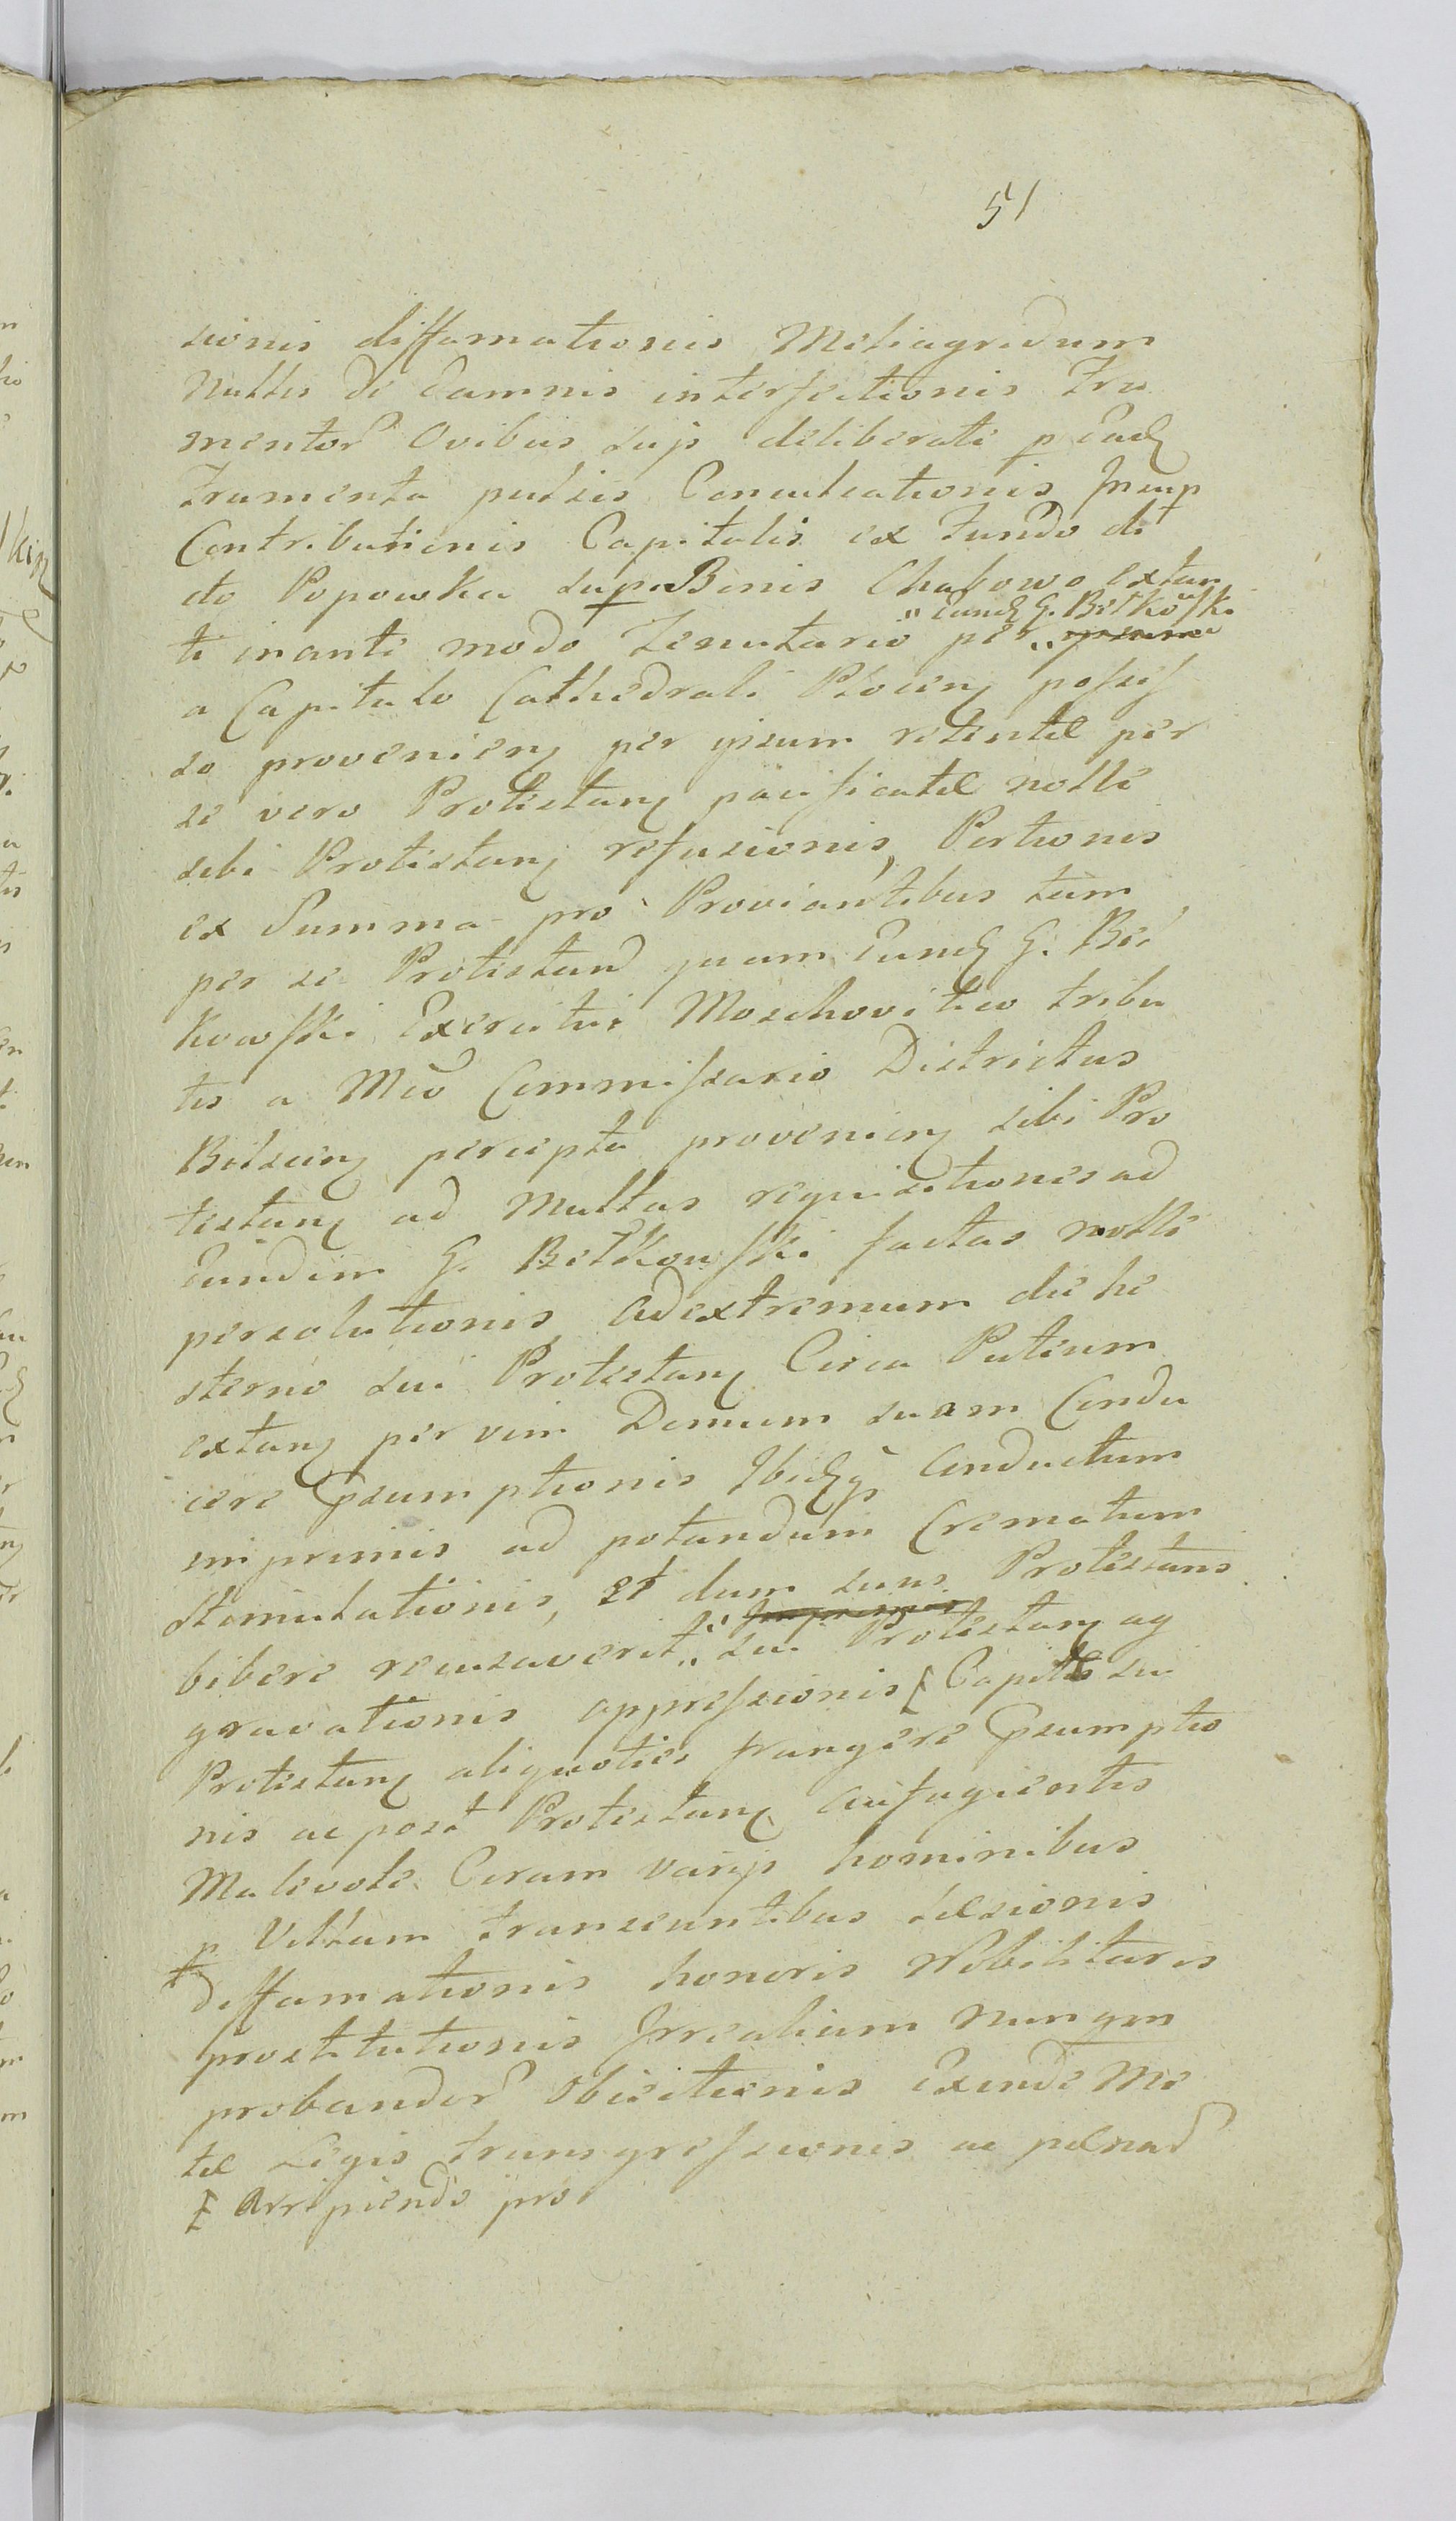 51
sionis diffamationis Meliagridum
Nullis de damnis interfectionis Fru
mentor Ovibus sup deliberate p Eund
Frumenta pulsis Conculcationis Insup
Contributionis Capitalis ex Fundo dit
cto Popowka sup Bonis Chabowo extan
"Eund G. Bełkoski
ti inanti modo Tenutario per ipsum
a Capitulo Cathedrali Płocen possess
so provenien per ipsum retentæ per
se vero Protestan pacificatæ nolle
sibi Protestan refusionis, Portionis
ex Summa pro Proviantibus tam
per se Protestand quam Eund G. Beł
kowski Exercitui Moschovitico tribu
tis a Mco Commissario Districtus
Bielscen percepta provenien sibi Pro
testan ad Multas requisitiones ad
Eundem G. Bełkowski factas nolle
persolutionis, Ad extremum die he
sterno sui Protestan Circa Puteum
extan per vim Domum suam Condu
cere Psumptionis Ibidq Conductum
imprimis ad potandum Crematum
Stimulationis, Et dum suus Protestans
bibere recusaverit " sui Protestan ag
gravationis oppressionis Capite su
Protestan aliquoties frangere Psumptio
nis ac post Protestan aufugientis
Malevole Coram varijs hominibus
p Villam transeuntibus læsionis
diffamationis honoris Nobilitaris
prostitutionis Irrealium nunqm
probandor Obiectionis Exinde Me
tæ Legis transgressionis ac pænar
Arripiendo pro